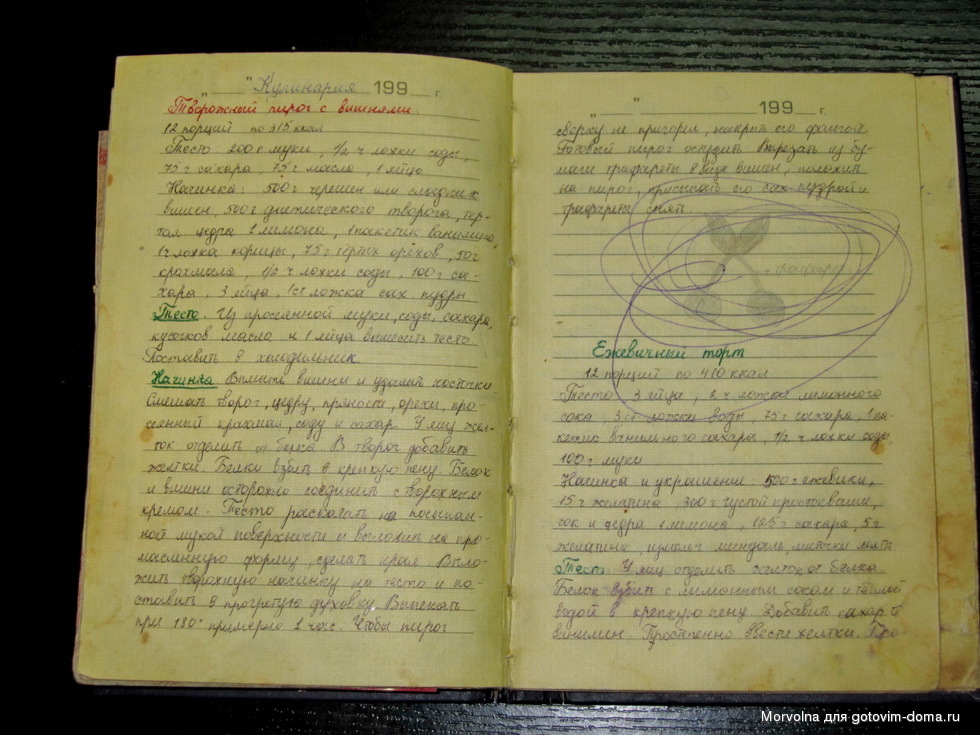 "Кулинария 199 г.
Творожный пирог с вишнями.
12 порций по 315 ккал
Тесто: 200 г муки, 1/2 ч ложки соды,
75 г сахара, 75 г масла, 1 яйцо
Начинка: 500 г черешен или сладких
вишен, 500 г диетического творога, тер-
тая цедра 1 лимона, 1 пакетик ванилина,
1 ч ложка корицы, 75 г тёртых орехов, 50 г
крахмала, 1/2 ч ложки соды, 100 г са-
хара, 3 яйца, 1 ст ложка сах. пудры
Тесто. Из просеянной муки, соды, сахара,
кусочков масла и 1 яйца вымесить тесто
Поставить в холодильник
Начинка Вымыть вишни и удалить косточки
Смешать творог, цедру, пряности, орехи, про-
сеянный крахмал, соду и сахар. У яиц жел-
ток отделить от белка. В творог добавить
желтки. Белки взбить в крепкую пену. Белок
и вишни осторожно соединить с творожным
кремом. Тесто раскатать на посыпан-
ной мукой поверхности и выложить на про-
масленную форму, сделать края. Выло-
жить творожную начинку на тесто и по-
ставить в прогретую духовку. Выпекать
при 180° примерно 1 час. Чтобы пирог
" 199 г.
сверху не пригорел, накрыть его фольгой
Готовый пирог остудить. Вырезать из бу-
маги трафареты в виде вишен, положить
на пирог, присыпать его сах. пудрой и
трафареты снять.
трафарет
Ежевичный торт
12 порций по 410 ккал
Тесто: 3 яйца, 2 ч ложки лимонного
сока, 3 ст ложки воды, 75 г сахара, 1 па-
кетик ванильного сахара, 1/2 ч ложки соды
100 г муки
Начинка и украшение: 500 г ежевики,
15 г желатина, 300 г густой простокваши,
сок и цедра 1 лимона, 125 г сахара, 5 г
желатина, измельч миндаль, листочки мяты
Тесто У яиц отделить желток от белка
Белок взбить с лимонным соком и тёплой
водой в крепкую пену. Добавить сахар и
ванилин. Постепенно ввести желтки.
Morvolna для gotovim-doma.ru